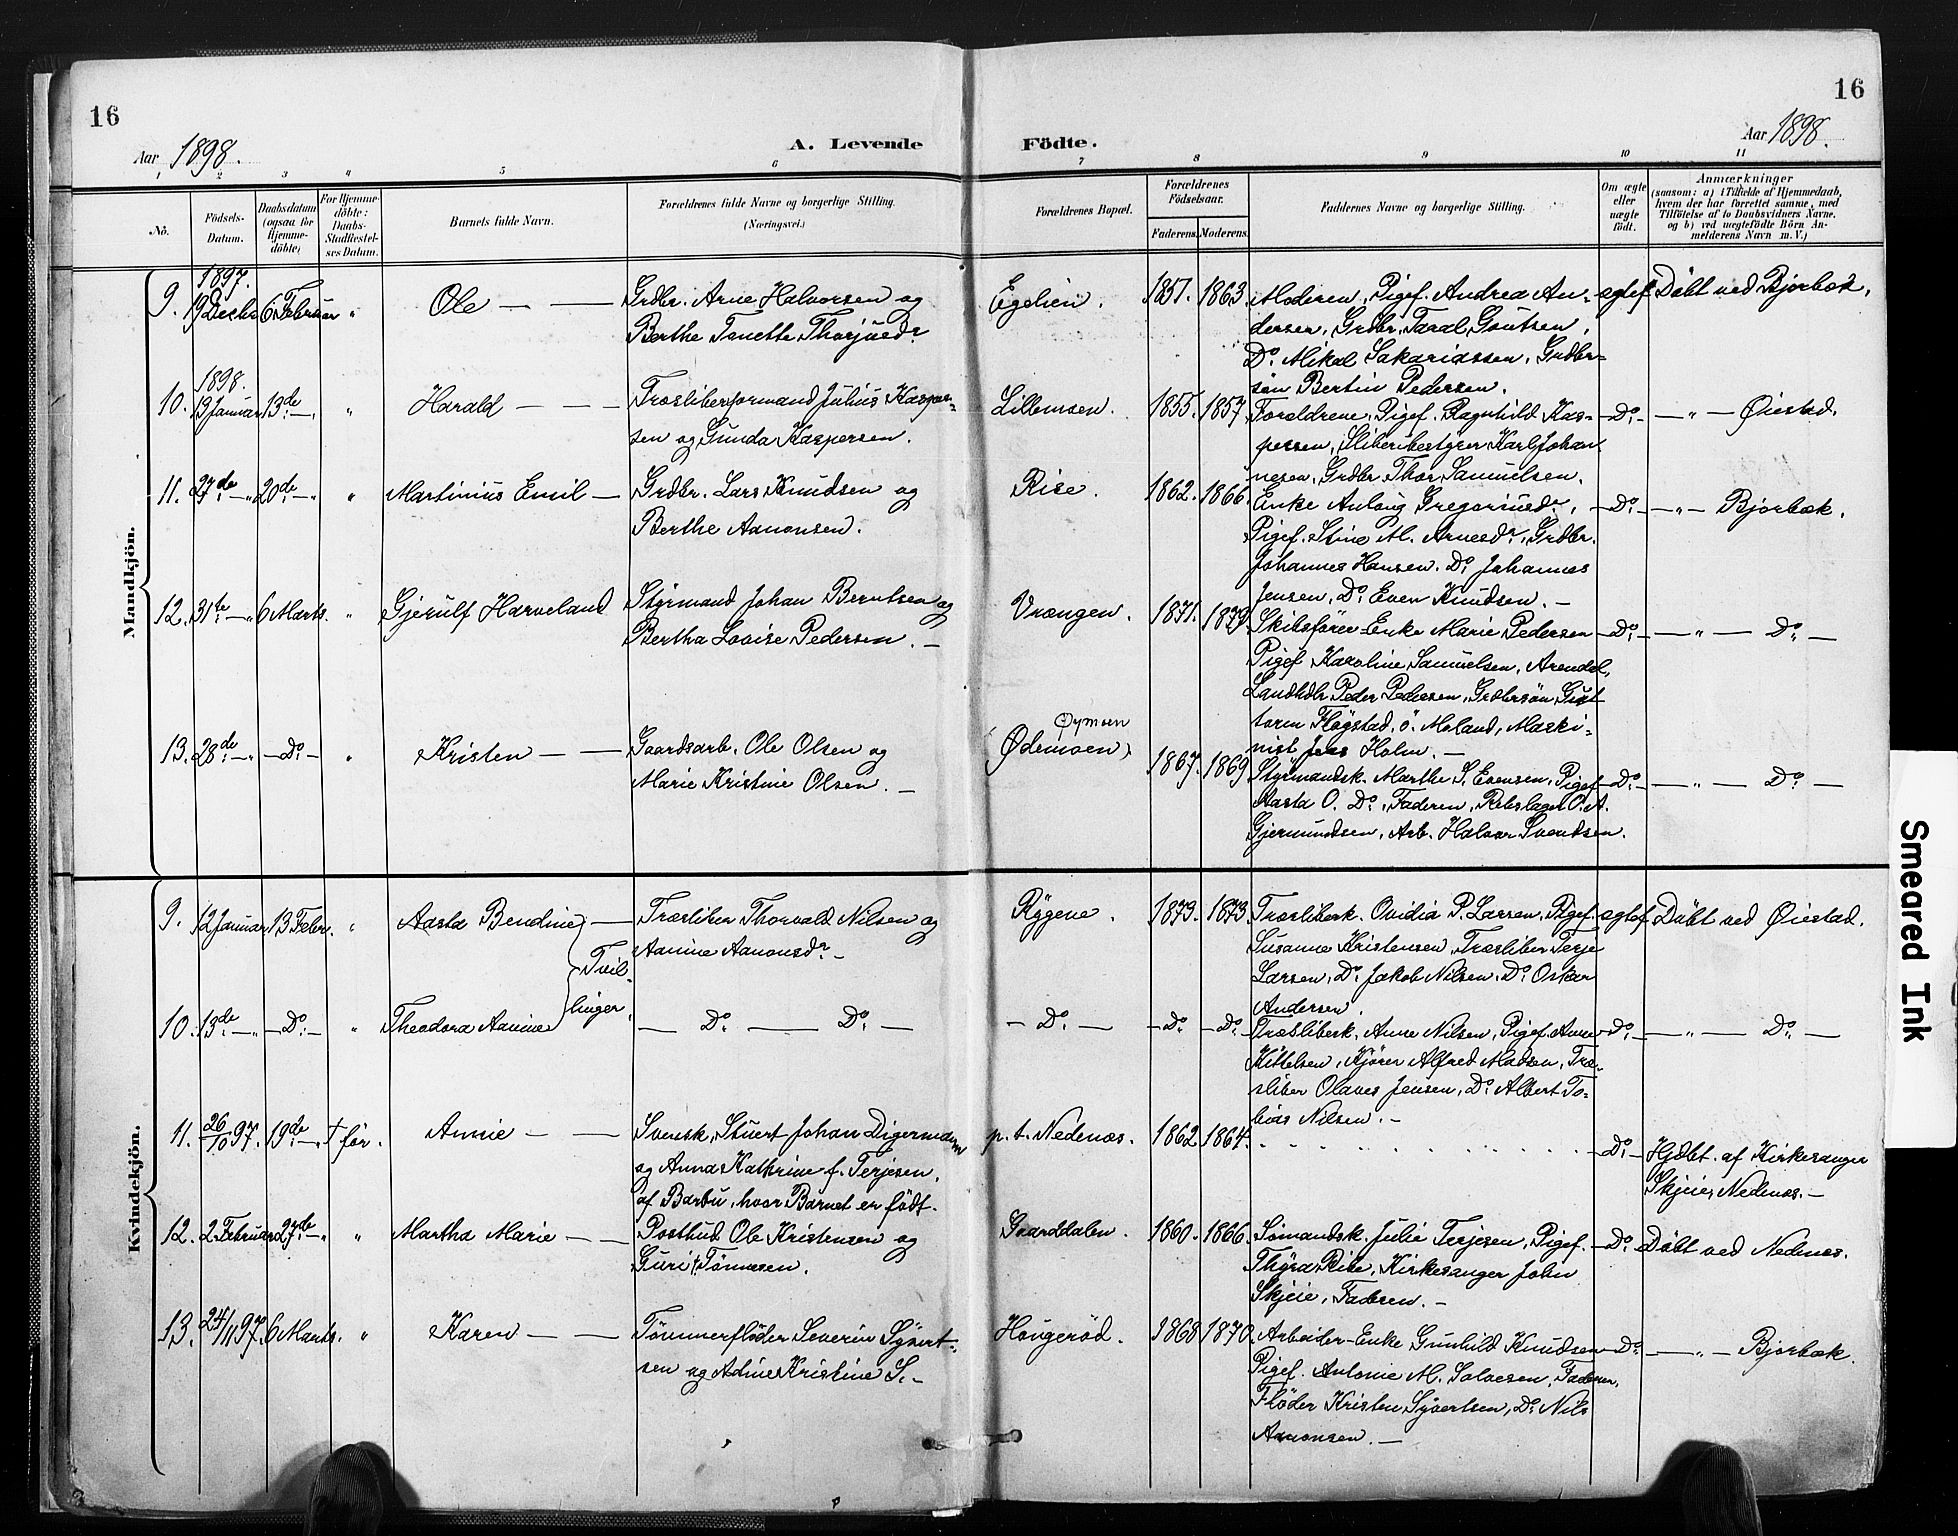 16
16
Aar 1898.
A. Levende
Födte.
Aar 1898.
1 2 3 4 5 6 7 8 9 10 11
No.
Födsels-
Datum.
Daabsdatum
(ogsaa for
Hjemme-
döbte)
For Hjemme-
döbte:
Daabs-
Stadfæstel-
ses Datum.
Barnets fulde Navn.
Forældrenes fulde Navne og borgerlige Stilling.
(Næringsvei.)
Forældrenes Bopæl.
Forældrenes
Födselsaar.
Faderens.
Moderens.
Faddernes Navne og borgerlige Stilling.
Om ægte
eller
uægte
födt.
Anmærkninger
(saasom: a) i Tilfælde af Hjemmedaab,
hvem der har forrettet samme, med
Tilföielse af to Daabsvidners Navne.
og b) ved uægtefödte Börn An-
melderens Navn m. V.)
Mandkjön.
9. 1897. 19 Decbr 6 Februar " Ole —
Grdbr. Arne Halvorsen og
Berthe Tonette Thorjusdr
Egelien. 1851. 1863.
Moderen, Pigef. Andrea An-
dersen, Grdbr. Taral Goutsen,
Do. Mikal Sakariassen, Grdbr-
søn Bertin Pedersen.
egtef. Döbt ved Bjorbæk.
10. 1898. 13 Januar 13de " Harald —
Træsliberformand Julius Kasper-
sen og Gunda Kaspersen.
Lillemoen. 1855. 1857.
Forældrene, Pigef. Ragnhild Kas-
persen, Sliberibestyrer Karl Johan-
nesen, Grdbr. Thor Samuelsen.
Do. — " — Øiestad.
11. 27de — " 20de — " " Martinius Emil —
Grdbr. Lars Knudsen og
Berthe Aanonsen.
Rise. 1862. 1866.
Enke Anlaug Gregoriusdr.,
Pigef. Stine M. Arnesdr., Grdbr.
Johannes Hansen. Do. Johannes
Jensen, Do. Even Knudsen. —
Do. — " — Bjorbæk.
12. 31te — " 6 Marts. " Gjerulf Harveland
Styrmand Johan Berntsen og
Bertha Lovise Pedersen. —
Vrængen. 1871. 1873.
Skibsfører-Enke Marie Pedersen
Pigef. Karoline Samuelsen, Arendal,
Landhdlr. Peder Pedersen, Grdbrsön Gut-
torm Flögstad, ö. Moland, Maski-
nist Jens Holm. —
Do. — " — Do. —
13. 28de — " — Do. — " Kristen —
Gaardsarb. Ole Olsen og
Marie Kristine Olsen. —
Øymoen
(Ødemoen) 1867. 1869.
Styrmandsk. Marthe S. Evensen, Pigef.
Aasta O. Do., Faderen, Rebslager O. A.
Gjermundsen, Arb. Halvor Svendsen.
Do. — " — Do. —
Kvindekjön.
9. 12 Januar 13 Febr. " Aasta Bendine —
Tvil-
linger.
Træsliber Thorvald Nilsen og
Aanine Aanonsdr. —
Rygene. 1873. 1873.
Træsliberk. Ovidia P. Larsen, Pigef.
Susanne Kristensen, Træsliber Terje
Larsen, Do. Jakob Nilsen, Do. Oskar
Andersen.
egtef. Döbt ved Øiestad.
10. 13de — " — Do. — " Theodora Aanine
— Do. — Do. —
— Do. — — Do. — Do.
Træsliberk. Anne Nilsen, Pigef. Anne
Kittelsen, Kjörer Alfred Madsen, Træ-
sliber Olaves Jensen, Do. Albert To-
bias Nilsen. —
Do. — " — Do. —
11. 26/10 97. 19de — " för. Annie —
Svensk, Stuert Johan
og Anna Kathrine f. Terjesen,
af Barbu, hvor Barnet er födt.
p. t. Nedenæs. 1862 1864.
Do. — Hjdbt. af Kirkesanger
Skjeie, Nedenæs. —
12. 2 Februar 27de — " " Martha Marie —
Postbud Ole Kristensen og
Guri Tönnesen.
Gaarddalen. 1860. 1866.
Sømandsk. Julie Terjesen, Pigef.
Thyra Rise, Kirkesanger John
Skjeie, Faderen. —
Do. Döbt ved Nedenæs.
13. 24/11 97. 6 Marts. " Karen —
Tömmerflöder Severin Syvert-
sen og Adine Kristine S. —
Hougeröd. 1868 1870.
Arbeider-Enke Gunhild Knudsen
Pigef. Antonie M. Salvesen, Faderen,
Flöder Kristen Syvertsen, Do. Nils
Aanonsen. —
Do. — " — Bjorbæk.
Smeared Ink